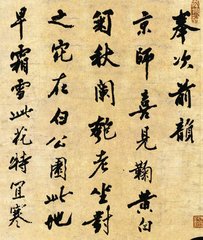 奉次前韻
京師喜見鞠黃白
秋闌匏老坐對
之宛在伯公園此地
早霜雪此花特宜寒